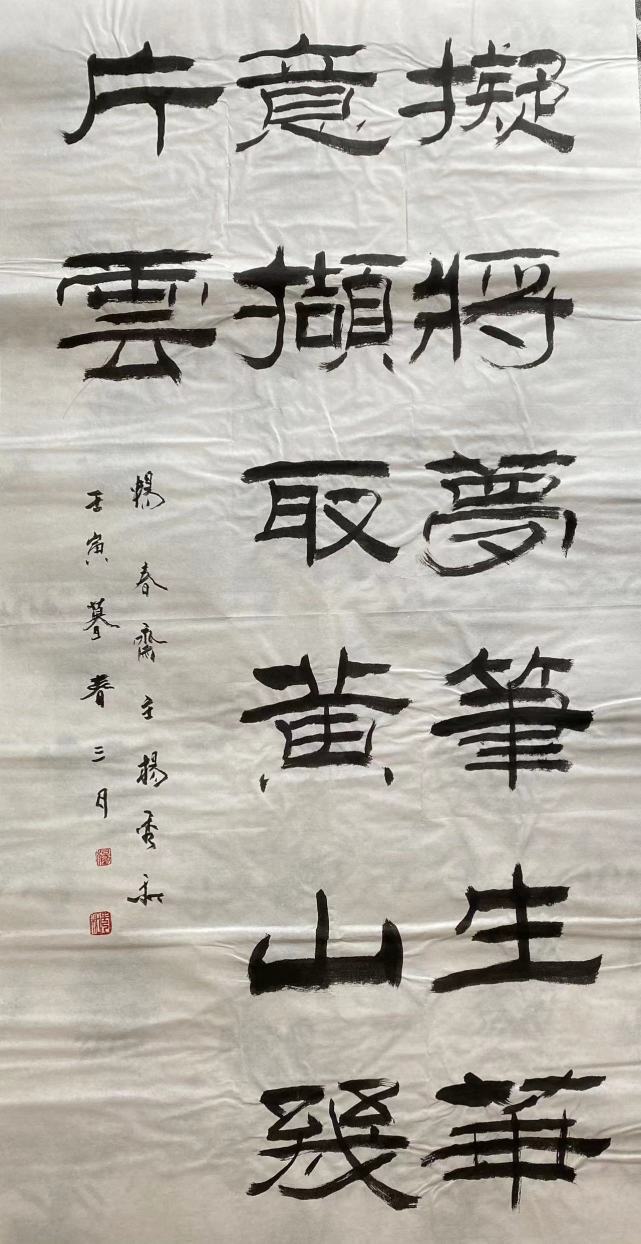 擬將夢筆生華
意擷取黃山幾
片雲
春齋主楊秀和
壬寅暮春三月